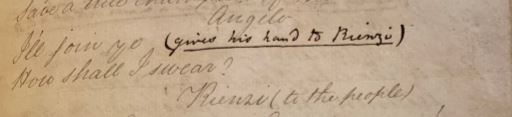 Save a
Angelo
I'll join ye (gives his hand to Rienzi)
How shall I swear?
Rienzi (to the people)